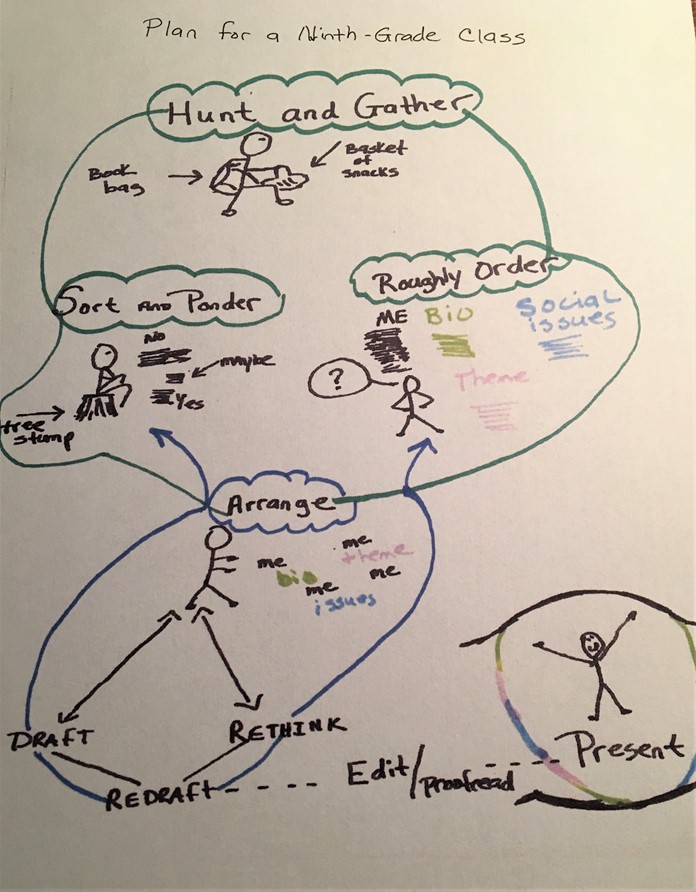 Plan for a Ninth-Grade Class
Hunt and Gather
Book
bag
Basket
of
snacks
Sort And Ponder
No
maybe
Yes
tree
stump
Roughly Order
ME
Bio
Social
issues
?
Theme
Arrange
me
theme
me
bio
me
me
issues
DRAFT
RETHINK
REDRAFT
Edit/
Proofread
Present